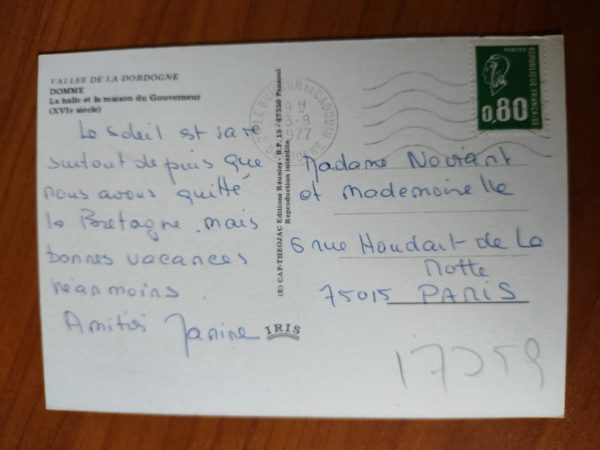 VALLEE DE LA DORDOGNE
DOMME
La halle et la maison du Gouverneur
(XVIe siècle)
Le soleil est rare
surtout depuis que
nous avons quitté
la Bretagne. mais
bonnes vacances
néanmoins
Amitiés Janine
IRIS
(E) CAP-THEOJAC Editions Réunies - B.P. 15 - 87350 Panazol
Reproduction interdite
LE BUISSON DE CADOUIN
1977
POSTES
REPUBLIQUE FRANÇAISE
0,80
Madame Noviant
et Mademoiselle
6 rue Houdart de La
Motte
75015 PARIS
17259